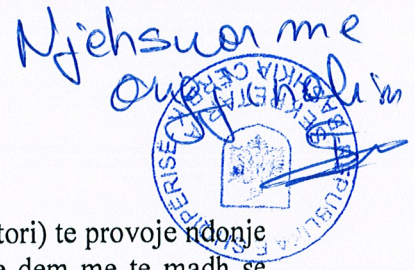 Njehsuar me
origjinalin
REPUBLIKA E SHQIPERISË
SEKRETARIA
tori) te provoje ndonje
dem me te madh se